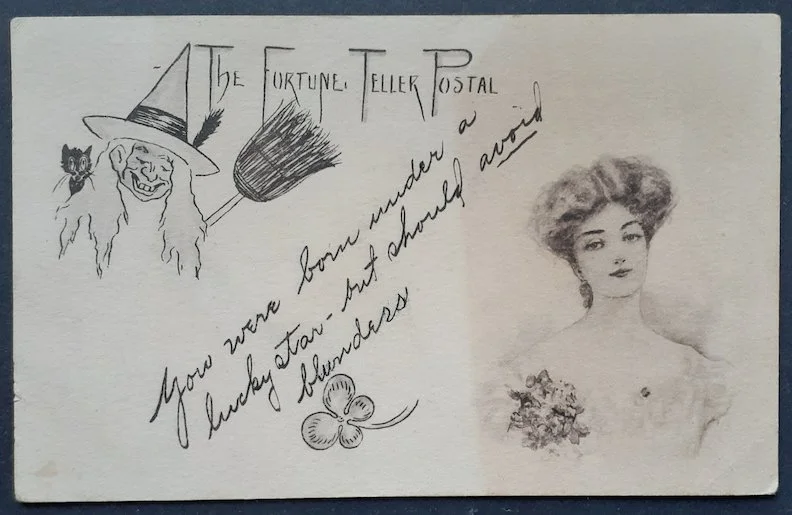 The Fortune Teller Postal
You were born under a
lucky star - but should avoid
blunders